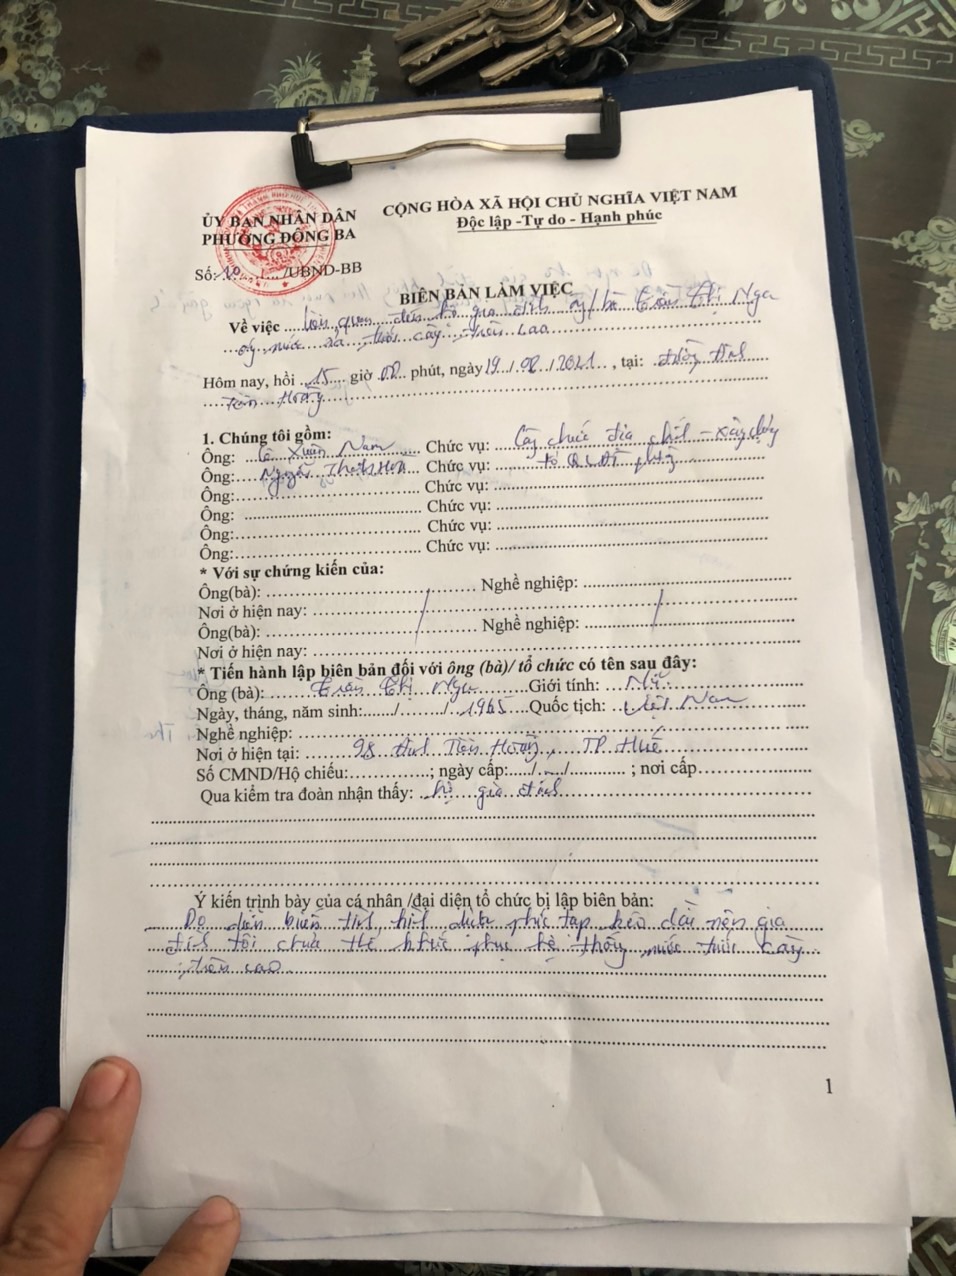 ỦY BAN NHÂN DÂN
PHƯỜNG ĐÔNG BA
CỘNG HÒA XÃ HỘI CHỦ NGHĨA VIỆT NAM
Độc lập -Tự do - Hạnh phúc
Số: /UBND-BB
BIÊN BẢN LÀM VIỆC
Về việc liên quan đến hộ gia đình ông/bà Trần Thị Nga
nước trên cao
Hôm nay, hồi 15 giờ 00 phút, ngày 19/08/2021, tại: đường
1. Chúng tôi gồm:
Ông: Lê Xuân Nam Chức vụ: Công chức địa chính - xây dựng
Ông: Nguyễn Chức vụ: tổ
Ông: Chức vụ:
Ông: Chức vụ:
Ông: Chức vụ:
Ông: Chức vụ:
* Với sự chứng kiến của:
Ông(bà): Nghề nghiệp:
Nơi ở hiện nay:
Ông(bà): Nghề nghiệp:
Nơi ở hiện nay:
* Tiến hành lập biên bản đối với ông (bà)/ tổ chức có tên sau đây:
Ông (bà): Trần Thị Nga Giới tính: Nữ
Ngày, tháng, năm sinh:....../......./..1965 Quốc tịch: Việt Nam
Nghề nghiệp:
Nơi ở hiện tại: 98 TP Huế
Số CMND/Hộ chiếu:..............; ngày cấp:...../...../............ ; nơi cấp
Qua kiểm tra đoàn nhận thấy: hộ gia đình
Ý kiến trình bày của cá nhân /đại diện tổ chức bị lập biên bản:
Do diễn biến tình hình dịch phức tạp kéo dài nên gia
đình tôi chưa thể khắc phục hệ thống nước
trên cao
1